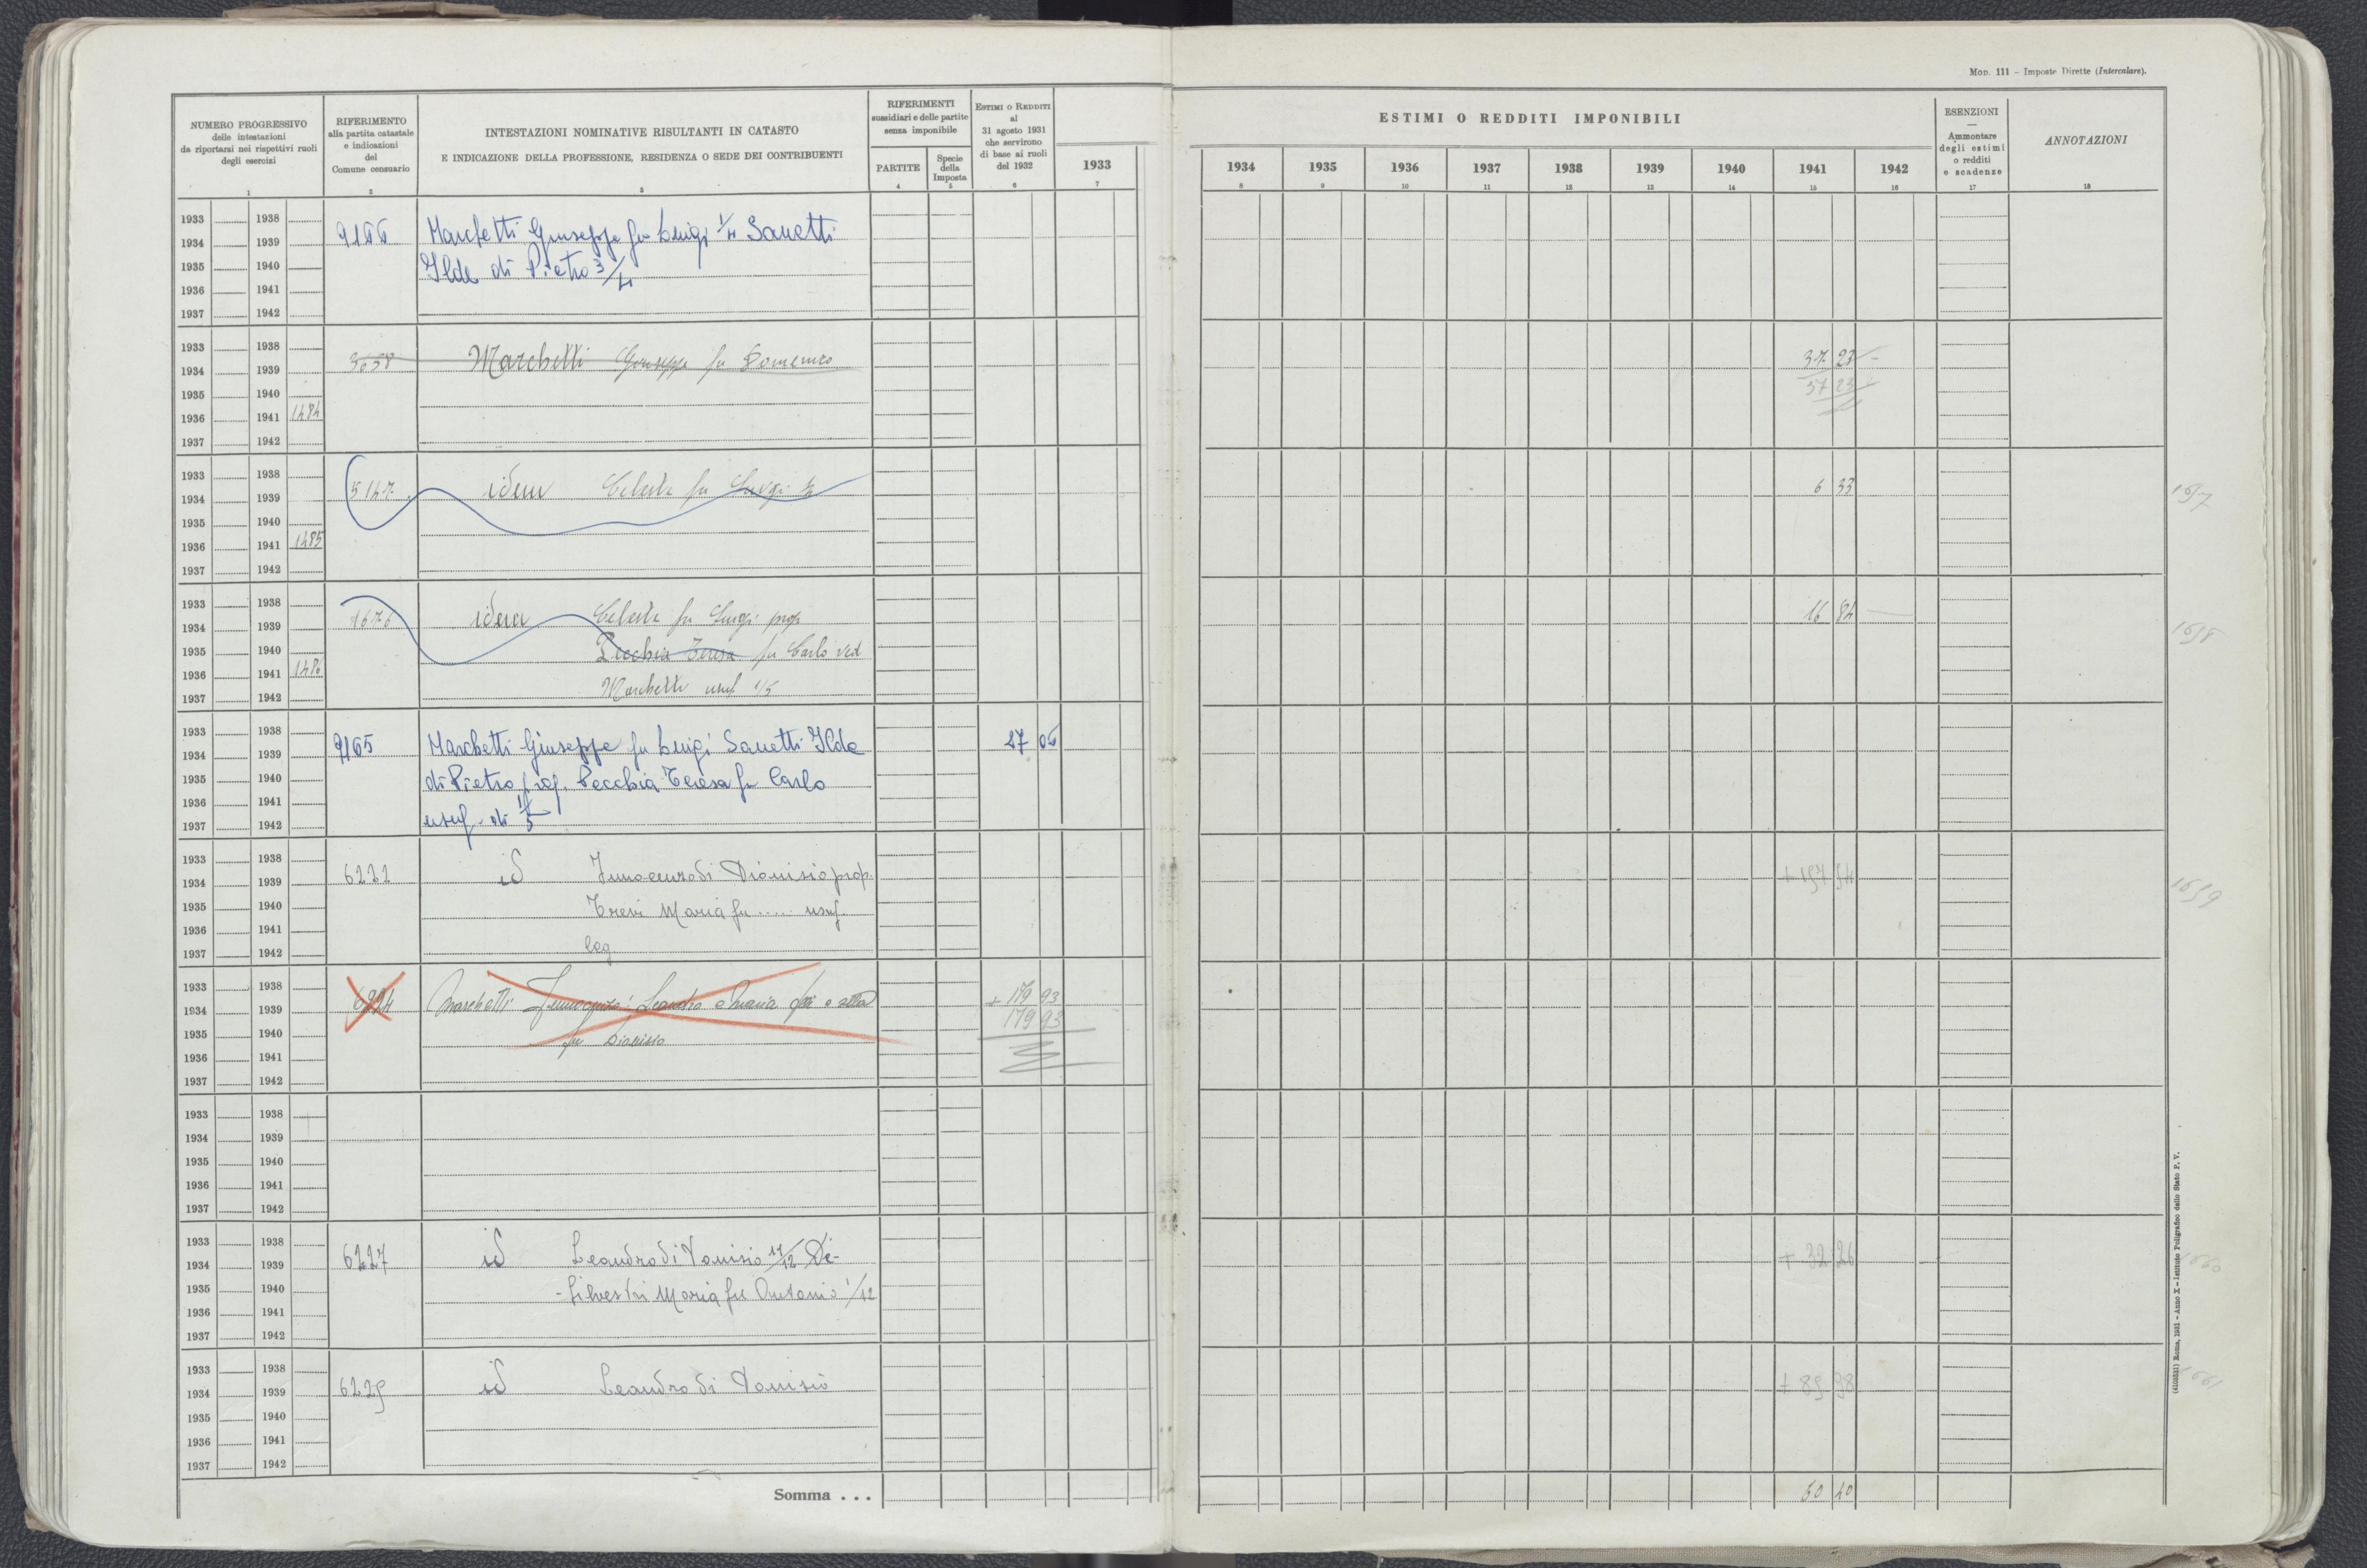 Mod. 111 – Imposte Dirette (Intercalare).
NUMERO PROGRESSIVO
delle intestazioni
da riportarsi nei rispettivi ruoli
degli esercizi
1
RIFERIMENTO
alla partita catastale
e indicazioni
del
Comune censuario
2
INTESTAZIONI NOMINATIVE RISULTANTI IN CATASTO
E INDICAZIONE DELLA PROFESSIONE, RESIDENZA O SEDE DEI CONTRIBUENTI
3
RIFERIMENTI
sussidiari e delle partite
senza imponibile
PARTITE
4
Specie
della
Imposta
5
Estimi o Redditi
al
31 agosto 1931
che servirono
di base ai ruoli
del 1932
6
1933
7
ESTIMI O REDDITI IMPONIBILI
1934 1935 1936 1937 1938 1939 1940 1941 1942
8 9 10 11 12 13 14 15 16
ESENZIONI
—
Ammontare
degli estimi
o redditi
e scadenze
17
ANNOTAZIONI
18
1933 1938
1934 1939 9166 Marchetti Giuseppe fu Luigi 1/4 Sanetti
1935 1940 Ilde di Pietro 3/4
1936 1941
1937 1942
1933 1938
1934 1939 3658 Marchetti Giuseppe fu Domenico 37 23
1935 1940 37 23
1936 1941 1484
1937 1942
1933 1938
1934 1939 5147 idem Celeste fu Luigi 6 33 1657
1935 1940
1936 1941 1485
1937 1942
1933 1938
1934 1939 1676 idem Celeste fu Luigi prop 16 84 1658
1935 1940 Pecchia Teresa fu Carlo ved
1936 1941 1486
1937 1942 Marchetti usuf 1/5
1933 1938
1934 1939 9165 Marchetti Giuseppe fu Luigi Sanetti Ilde 27 06
1935 1940 di Pietro prop. Pecchia Teresa fu Carlo
1936 1941
1937 1942 usuf. di 1/5
1933 1938
1934 1939 6222 id Innocenzo di Dionisio prop. + 197 94 1659
1935 1940 Tresi Maria fu .... usuf.
1936 1941
1937 1942 leg
1933 1938
1934 1939 6224 Marchetti Innocenzo Leandro e Maria + 179 93
1935 1940 fu Dionisio 179 93
1936 1941
1937 1942
1933 1938
1934 1939
1935 1940
1936 1941
1937 1942
1933 1938
1934 1939 6227 id Leandro di Donisio 11/12 De- + 32 26 1660
1935 1940 -Silvestri Maria fu Antonio 1/12
1936 1941
1937 1942
1933 1938
1934 1939 6229 id Leandro di Donisio + 89 98 1661
1935 1940
1936 1941
1937 1942
Somma . . . 60 40
(4108331) Roma, 1931 – Anno X – Istituto Poligrafico dello Stato P. V.